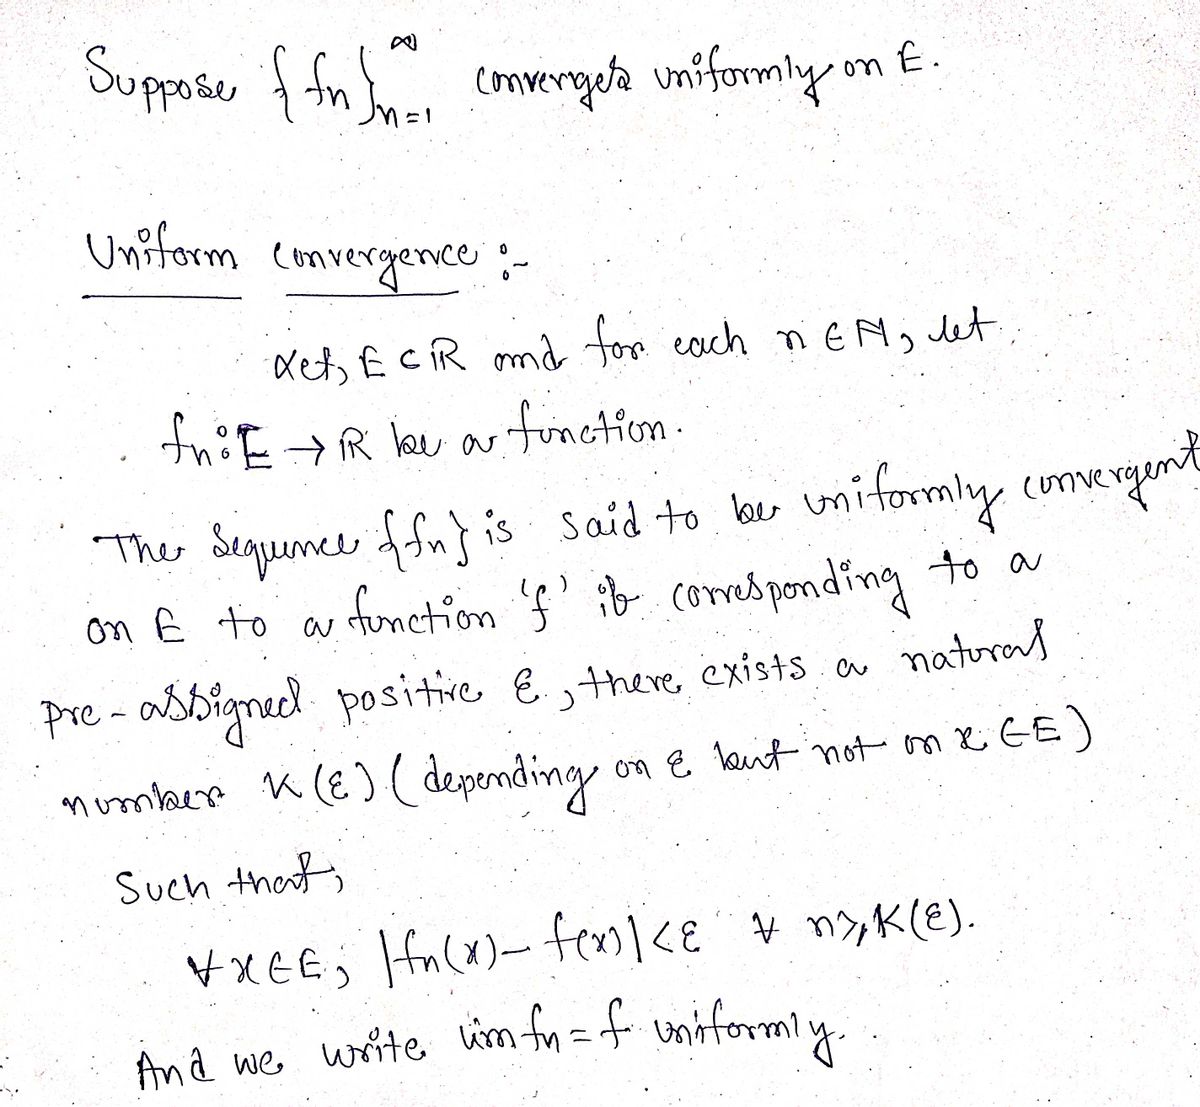 Suppose {fn}∞n=1 converges uniformly on E.
Uniform convergence :-
Let, E ⊂ ℝ and for each n ∈ ℕ, let
fn: E → ℝ be a function.
The sequence {fn} is said to be uniformly convergent
on E to a function 'f' if corresponding to a
pre-assigned positive ε, there exists a natural
number K(ε) (depending on ε but not on x ∈ E)
Such that,
∀ x ∈ E, |fn(x) - f(x)| < ε ∀ n ≥ K(ε).
And we write lim fn = f uniformly.